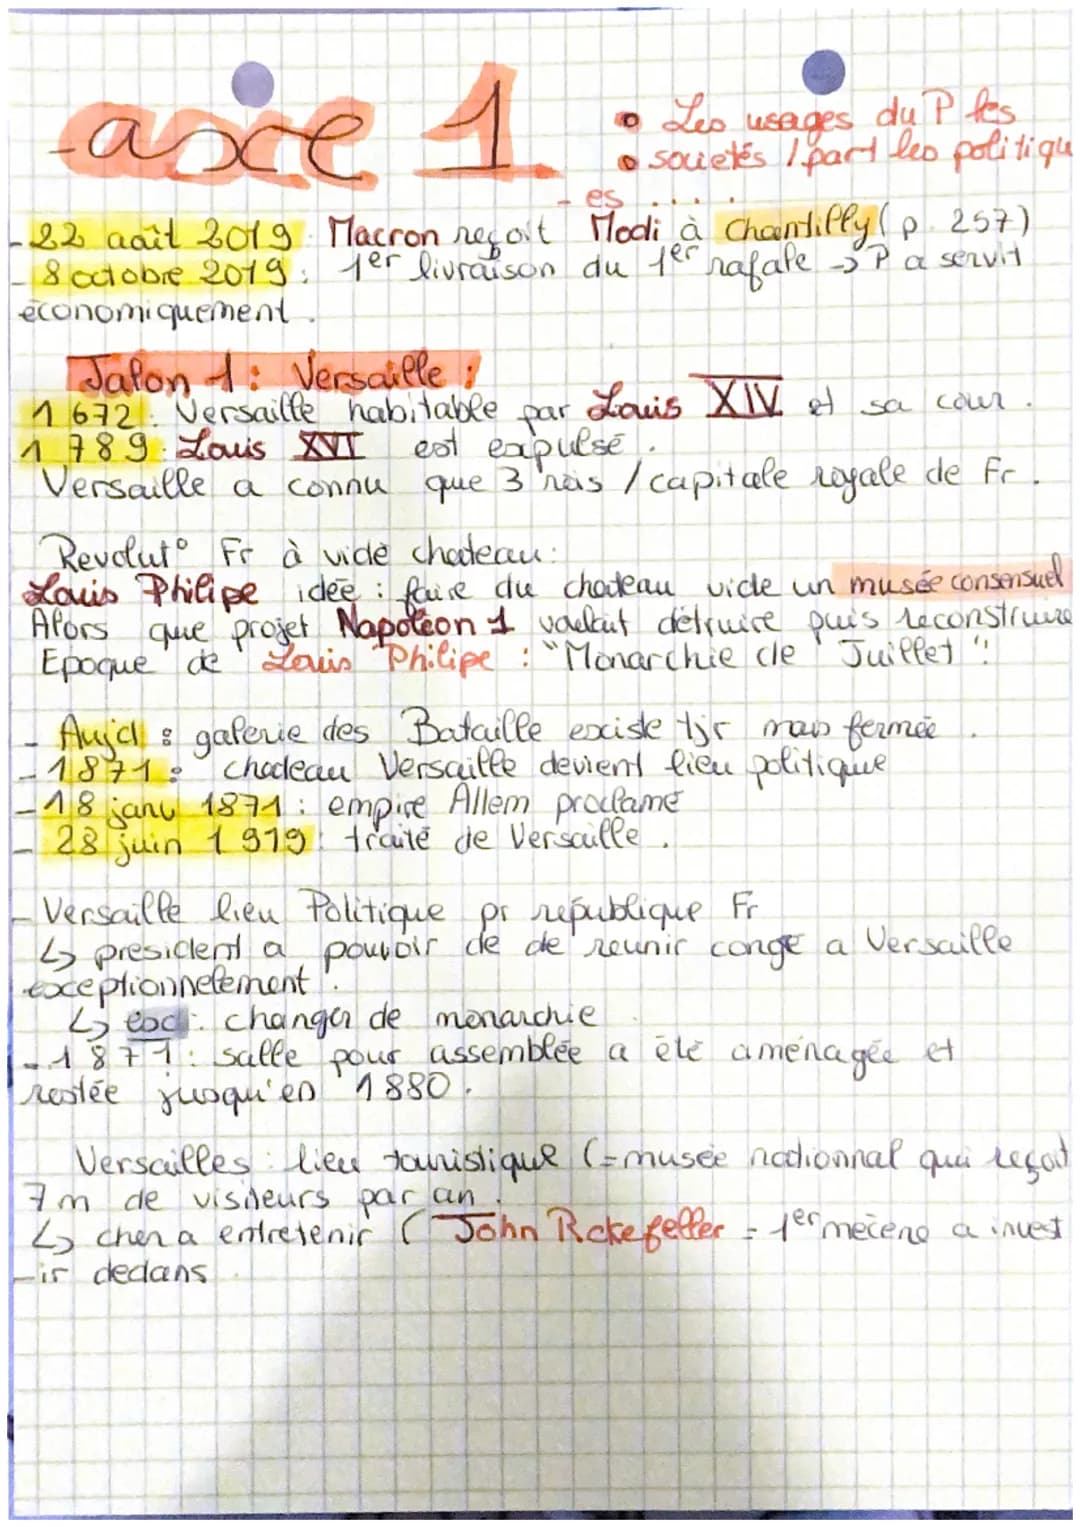 axe 1
• Les usages du P les
• societés / part les politiqu
- es ....
- 22 août 2019 : Macron reçoit Modi à Chantilly ( p. 257)
- 8 octobre 2019 : 1er livraison du 1er rafale -> P a servit
économiquement.
Jalon 1 : Versaille :
1672 : Versaille habitable par Louis XIV et sa cour.
1789 : Louis XVI est expulsé.
Versaille a connu que 3 rois / capitale royale de Fr.
Revolut° Fr à vidé chateau :
Louis Philipe idée : faire du chateau vide un musée consensuel
Alors que projet Napoléon 1 voulait détruire puis reconstruire
Epoque de Louis Philipe : "Monarchie de Juillet".
- Aujd : galerie des Bataille existe tjr mais fermée.
- 1871 : chateau Versaille devient lieu politique
- 18 janv 1871 : empire Allem proclamé
- 28 juin 1919 : traité de Versaille.
- Versaille lieu Politique pr republique Fr
↳ president a pouvoir de de reunir congé a Versaille
exceptionnelement.
↳ exd : changer de monarchie
- 1871 : salle pour assemblée a été aménagée et
restée jusqu'en 1880.
Versailles : lieu touristique (= musée nationnal qui reçoit
7m de visiteurs par an.
↳ cher a entretenir ( John Rckefeller = 1er mécène a invest
-ir dedans